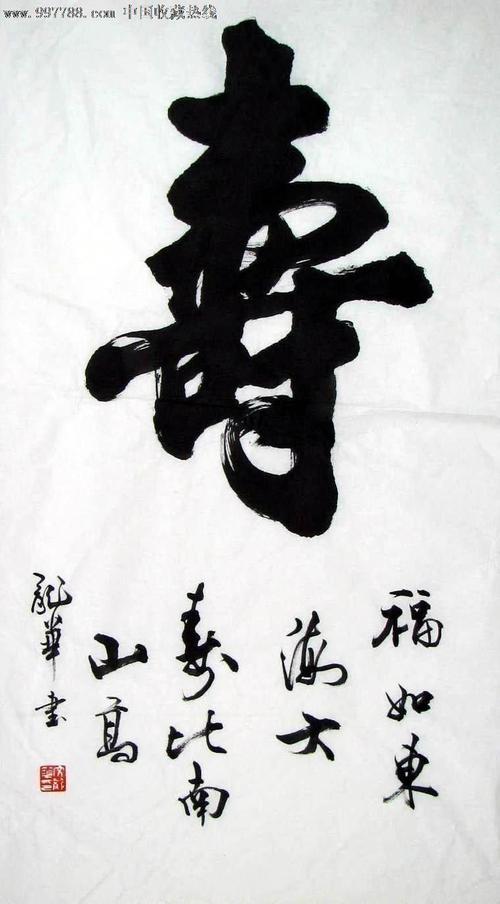 www.997788.com 中国收藏热线
壽
福如東
海大
寿比南
山高
龍華书